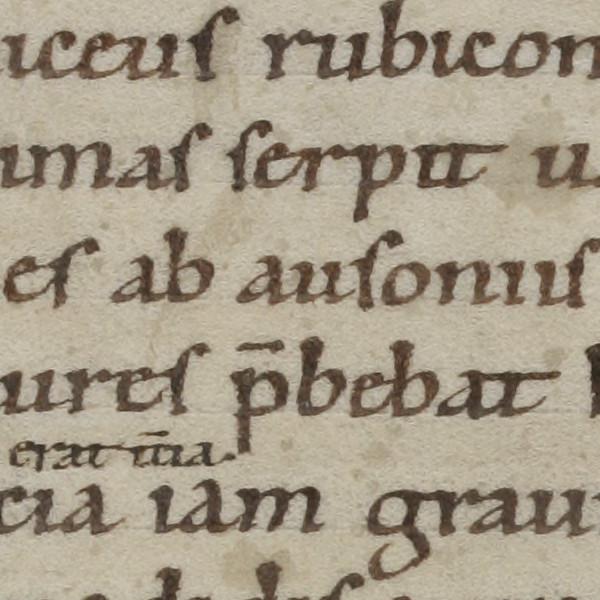 iceus rubicon
imas serpit u
es ab ausoniis
ires p̄bebat
erat
cia iam grau